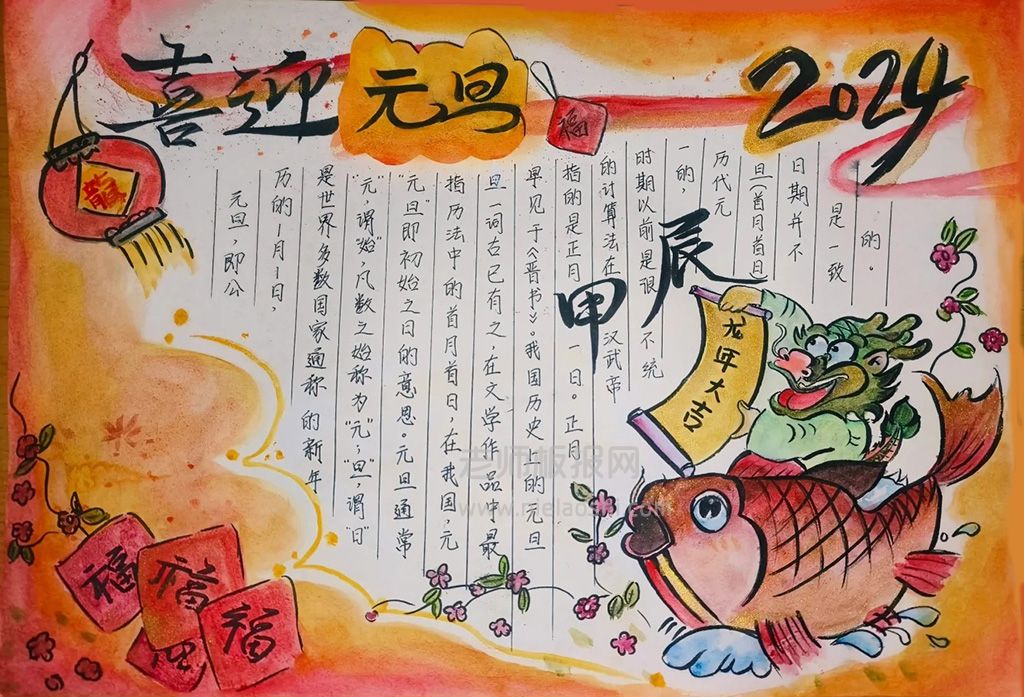 喜迎元旦
2024
福
龍
元旦，即公
历的1月1日，
是世界多数国家通称的新年
"元"，谓"始"，凡数之始称为"元"；"旦"，谓"日"
"元旦"即"初始之日"的意思。元旦通常
指历法中的首月首日，在我国，元
旦一词古已有之，在文学作品中最
早见于《晋书》。我国历史的元旦
指的是正月一日。正月
的计算法在汉武帝
时期以前是很不统
一的，
历代元
旦(首月首日
日期并不
是一致
的。
甲辰
龙年大吉
福
福
福
老师板报网